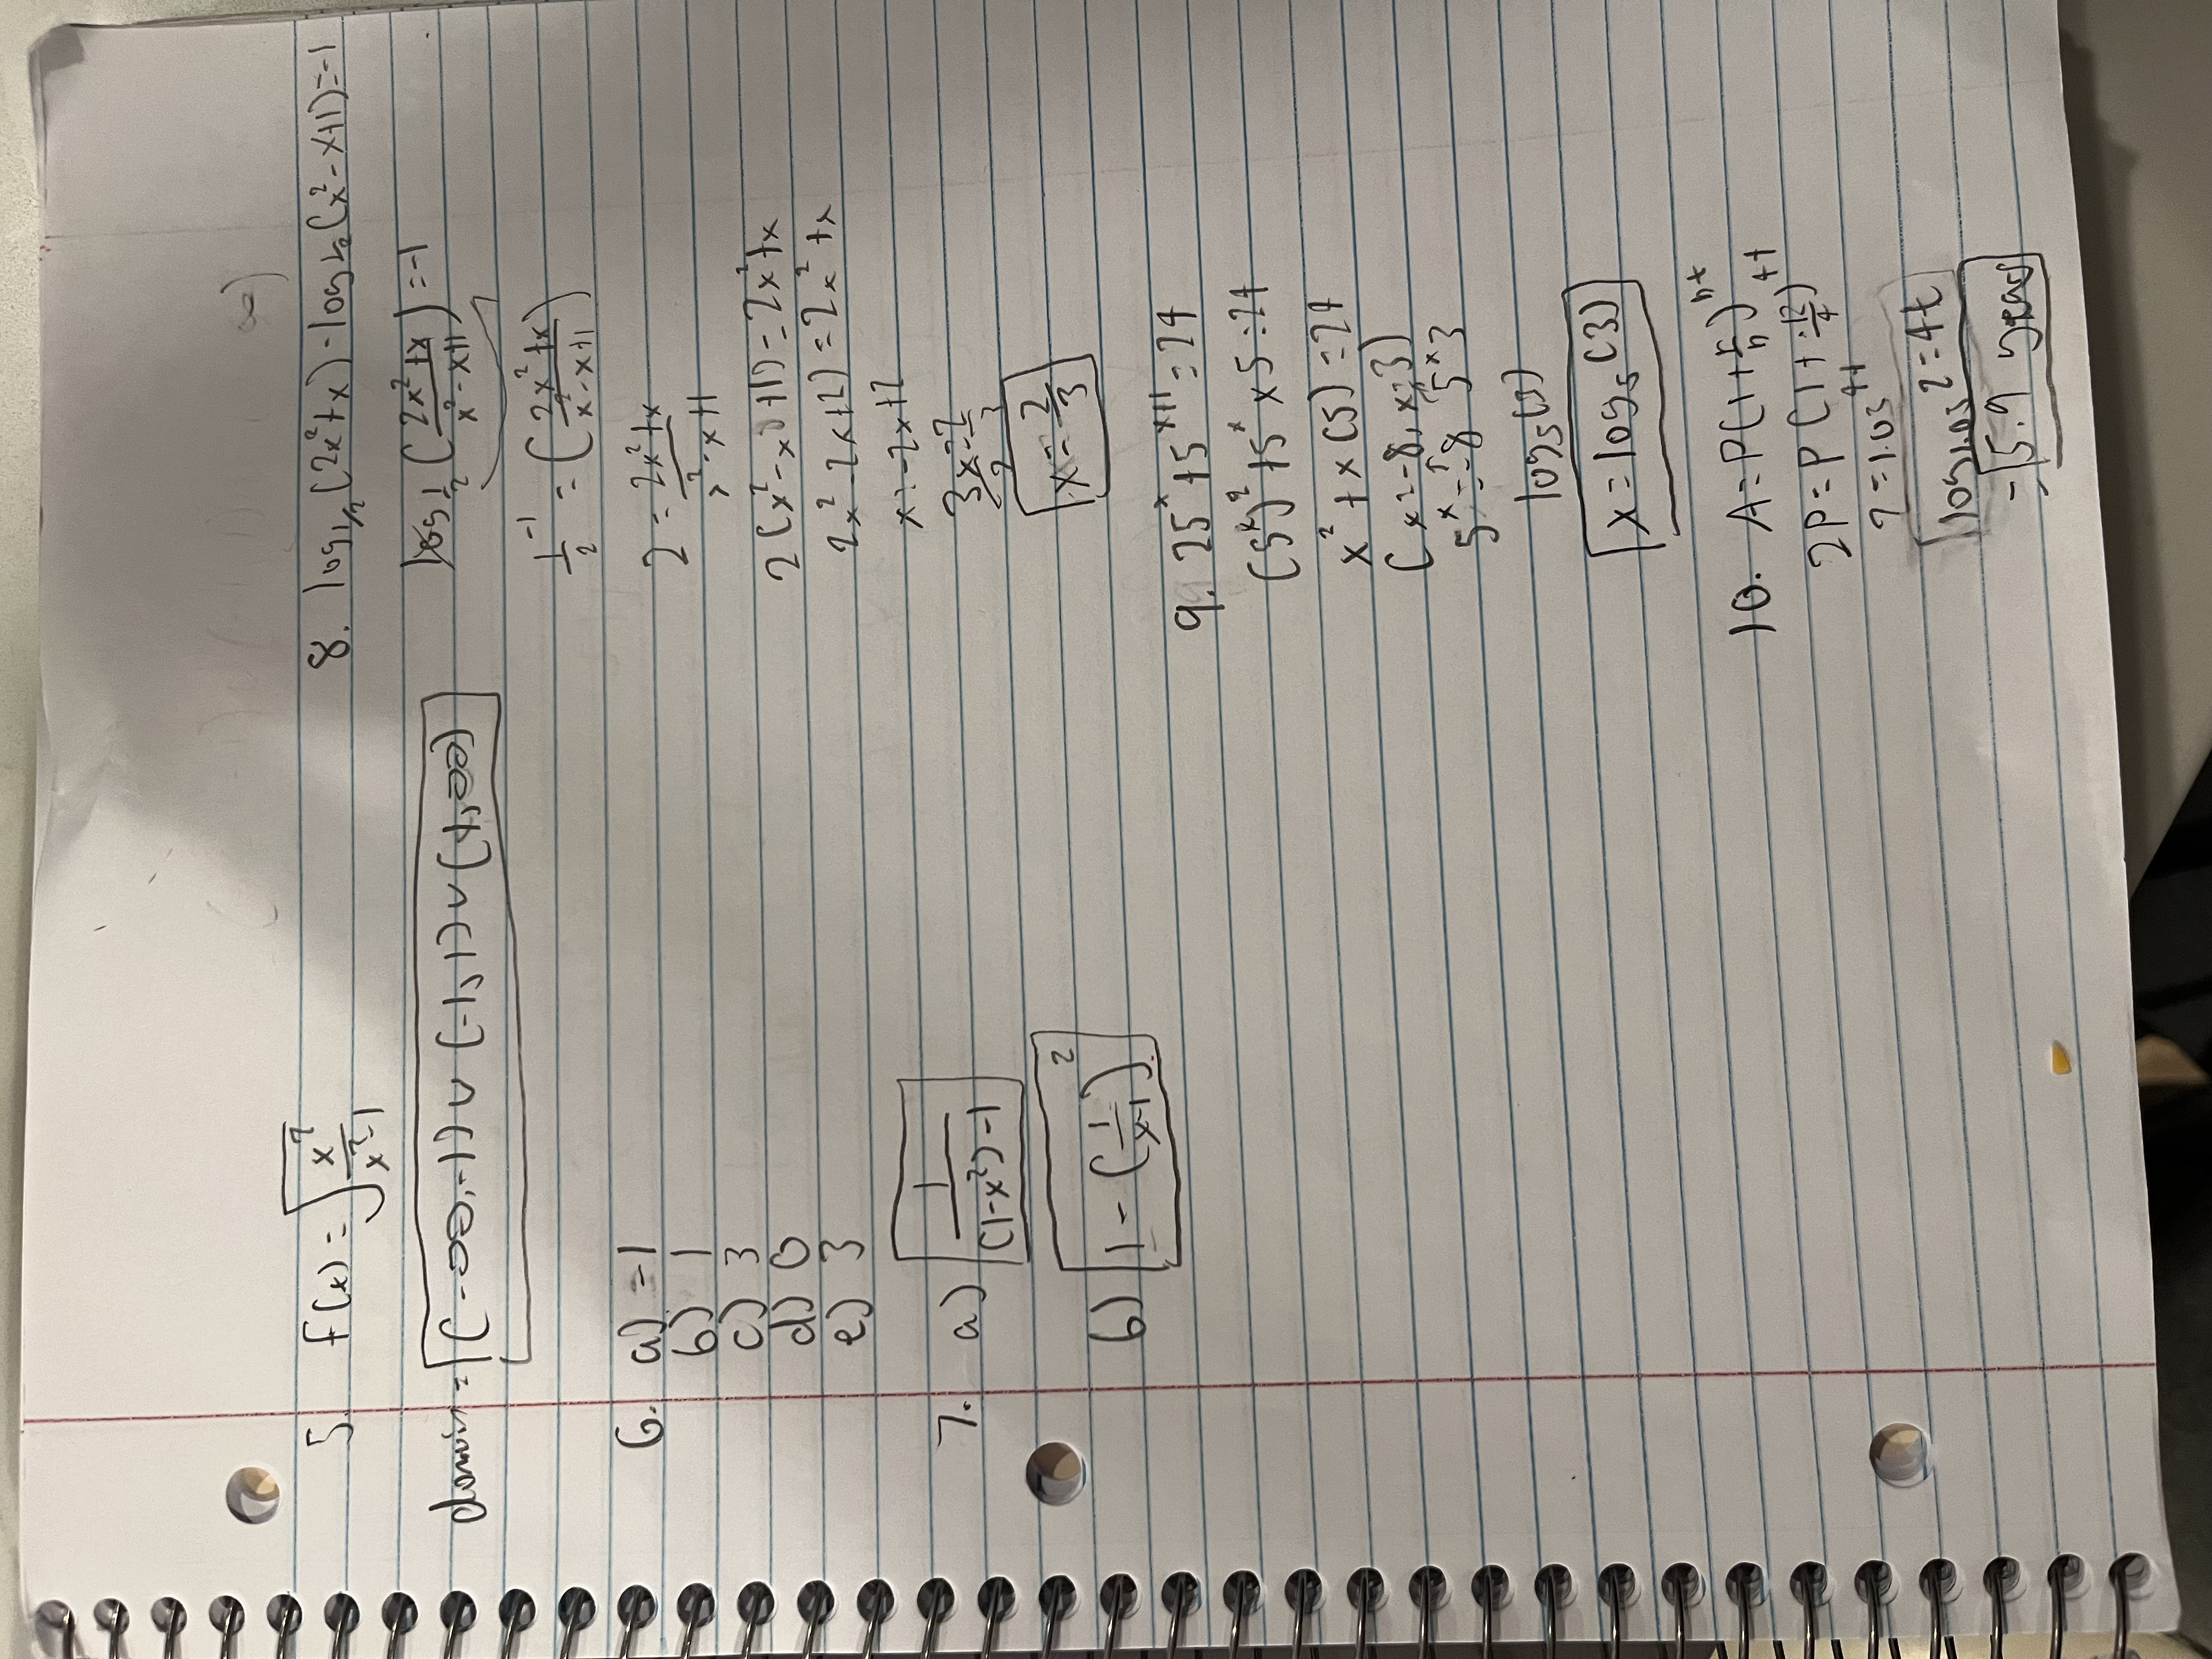 5. f(x) = √(x²/(x²-1))
domain = (-∞,-1) ∪ (-1,1) ∪ (1,∞)
6. a) = -1
b) 1
c) 3
d) 0
e) 3
7. a) 1/((1-x²)-1)
b) 1 - (1/(x-1))²
8. log_{1/2}(2x²+x) - log_{1/2}(x²-x+1) = -1
log_{1/2}((2x²+x)/(x²-x+1)) = -1
1/2^{-1} = ((2x²+x)/(x²-x+1))
2 = (2x²+x)/(x²-x+1)
2(x²-x+1) = 2x²+x
2x²-2x+2) = 2x²+x
x = -2x+2
3x = 2
3 3
x = 2/3
9. 25^x + 5^{x+1} = 24
(5^x)² + 5^x × 5 = 24
x² + x(5) = 24
(x = -8, x = 3)
5^x = -8 5^x 3
log₅(3)
x = log₅(3)
10. A = P(1 + r/n)^{nt}
2P = P(1 + .12/4)^{4t}
2 = 1.03^{4t}
log_{1.03} 2 = 4t
= 5.9 years